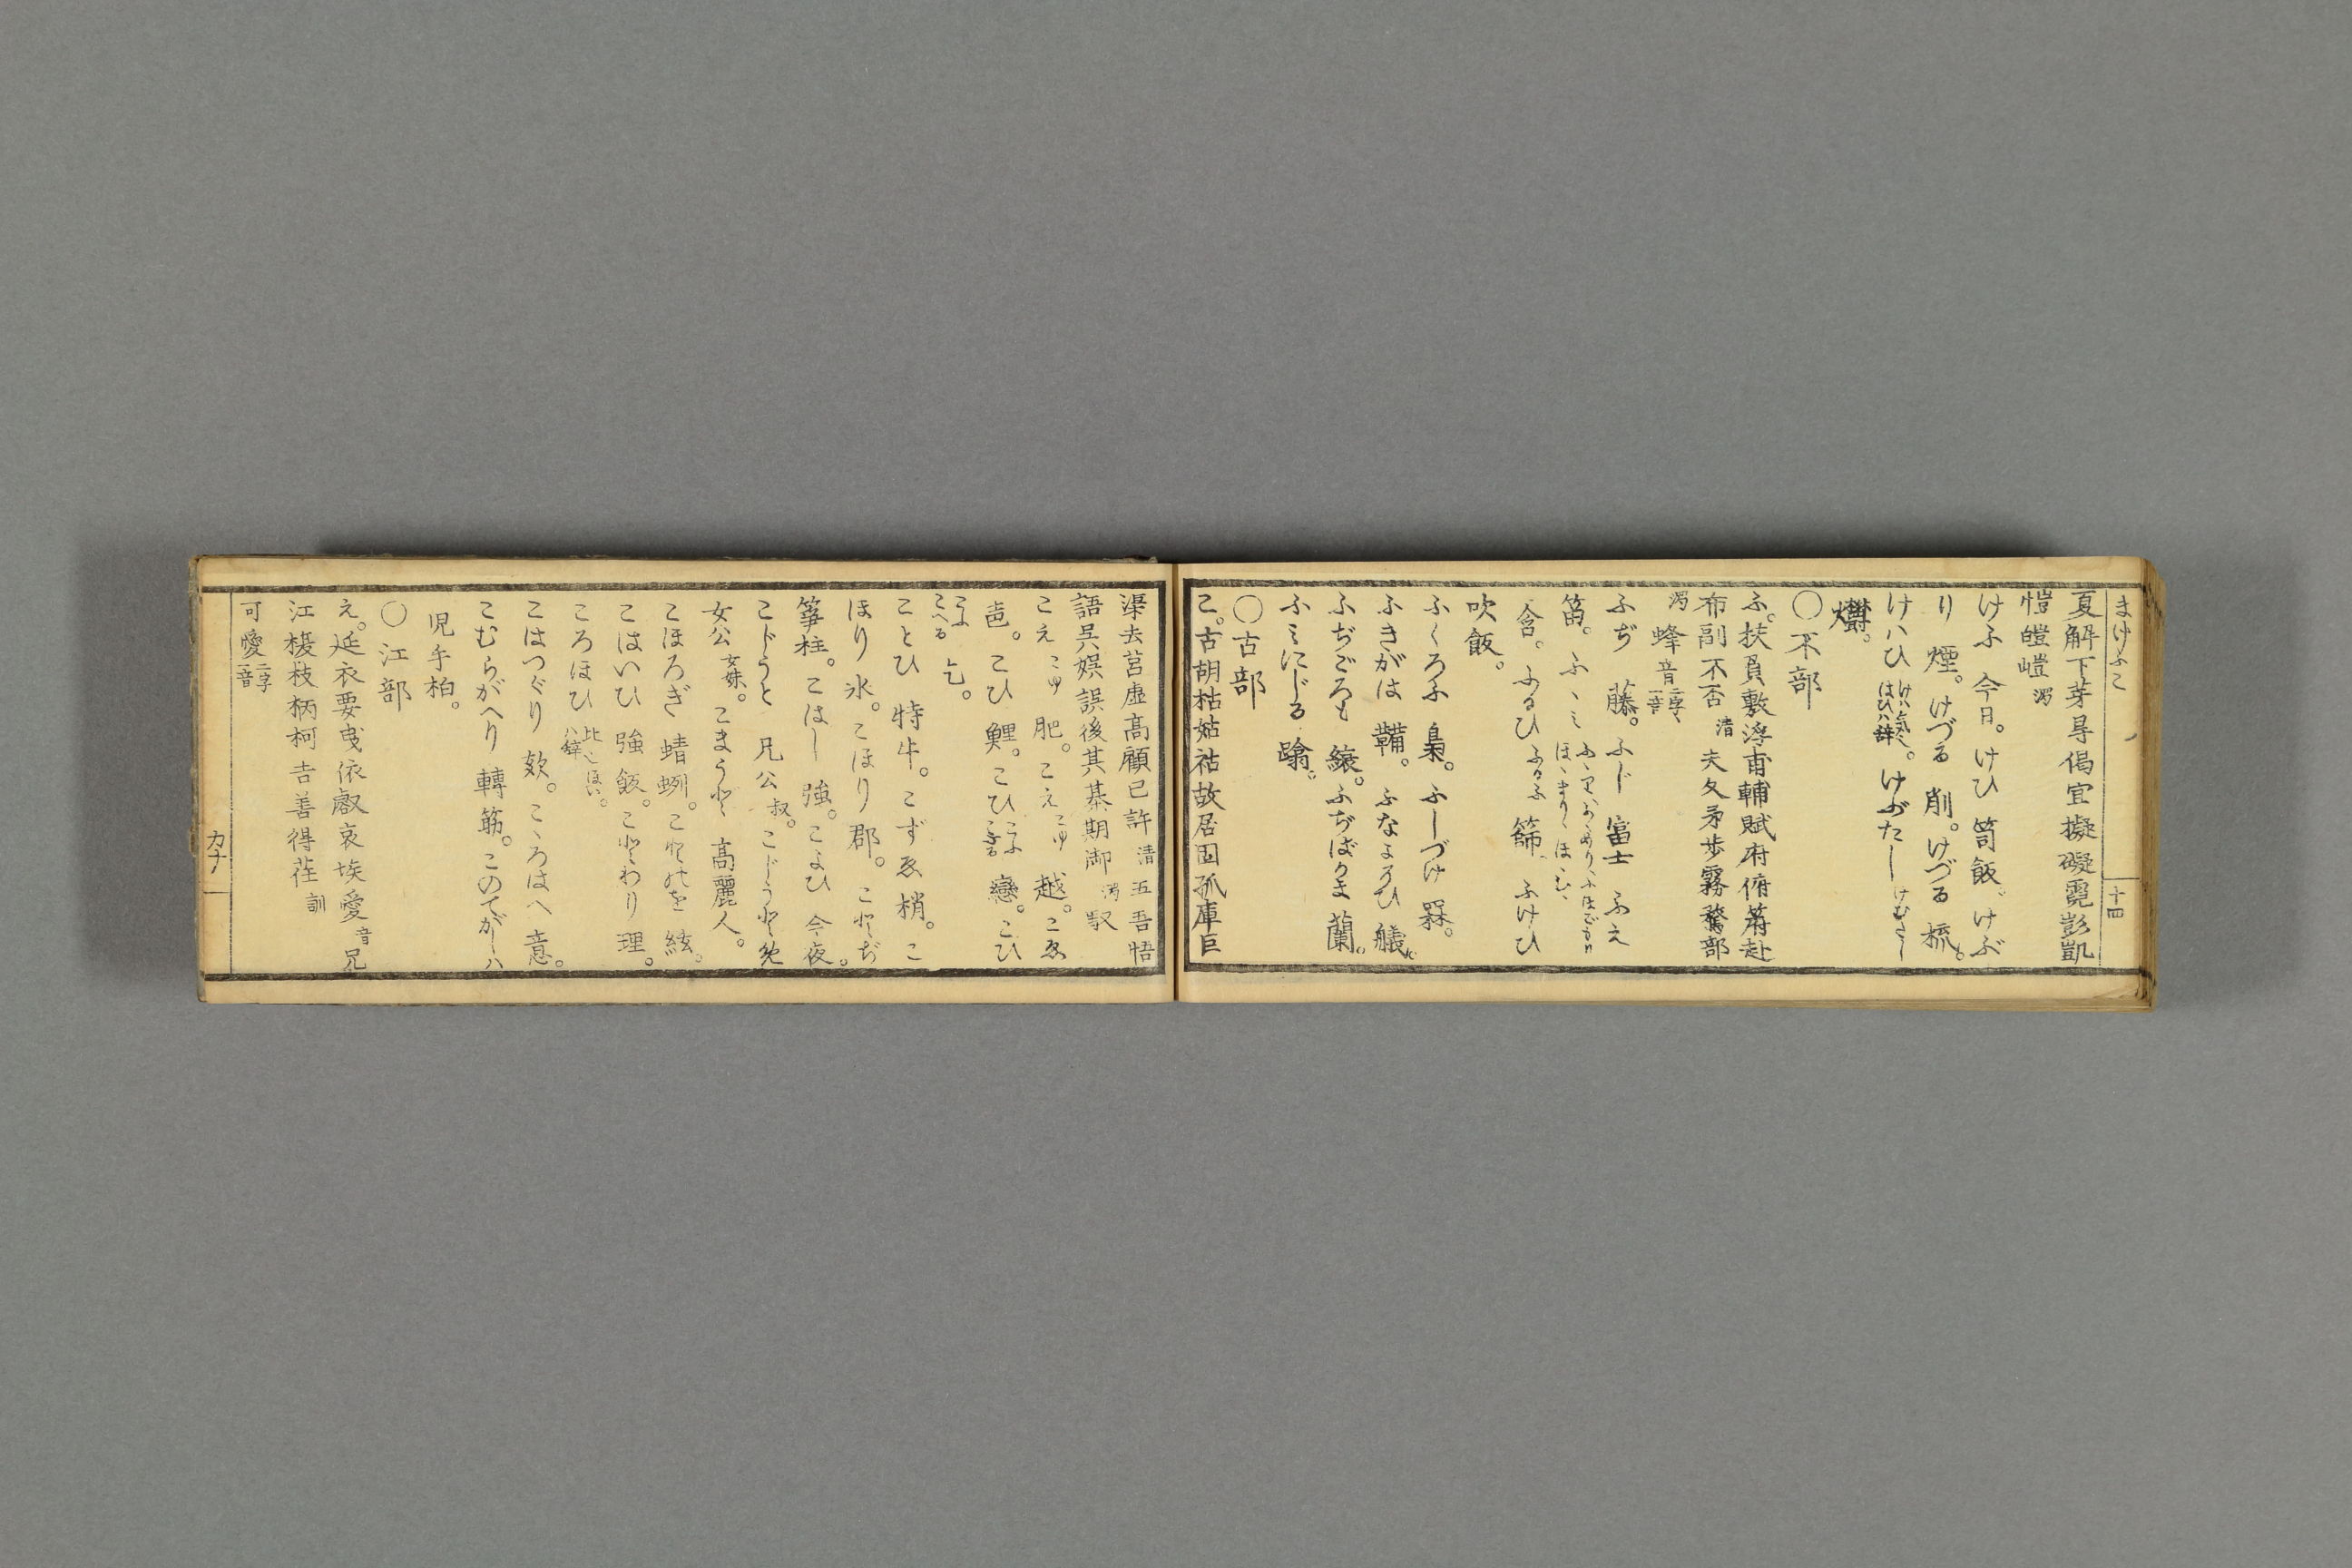 まけふこ
十四
夏解下芽㝵偈宜擬礙霓彭凱
愷皚嵦 濁
けふ 今日。けひ 笥飯。けぶ
り 煙。けづる 削。けづる 梳。
けハひ けハ気也。はひハ辞。けぶたし けむたし
○不部
ふ。扶負敷浮甫輔賦府俯赴
布副不否 清 夫父矛歩霧鶩部
濁 蜂 音 二字一音
ふぢ 藤。ふじ 富士 ふえ
笛。ふゝミ
含。ふるひ ふるふ 篩。ふけひ
吹飯。
ふくろふ 梟。ふしづけ 罧。
ふきがは 鞴。ふなよそひ 艤。
ふぢごろも 縗。ふぢばかま 蘭。
ふミにじる
○古部
こ。古胡枯姑祜故居固孤庫巨
渠去莒虚高顧己許 清 五吾悟
語呉娯誤後其碁期御 濁 馭
こえ こゆ 肥。こえ こゆ 越。こゑ
こひ 鯉。こひ こふ 戀。こひ
こふ こへる 乞。
ことひ 特牛。こずゑ 梢。こ
ほり 氷。こほり 郡。ことぢ
箏柱。こはし 強。こよひ 今夜。
こじうと 兄公 叔。こじうと
女公 女妹。こまうど 高麗人。
こほろぎ 蜻蛚。ことのを 絃。
こはいひ 強飯。ことわり 理。
ころほひ
こはつぐり 欬。こゝろばへ 意。
こむらがへり 轉筋。このてがしハ
児手柏。
○江部
え。延衣要曳依叡哀埃愛 音 兄
江榎枝柄柯吉善得荏 訓
可愛 二字一音
カナ